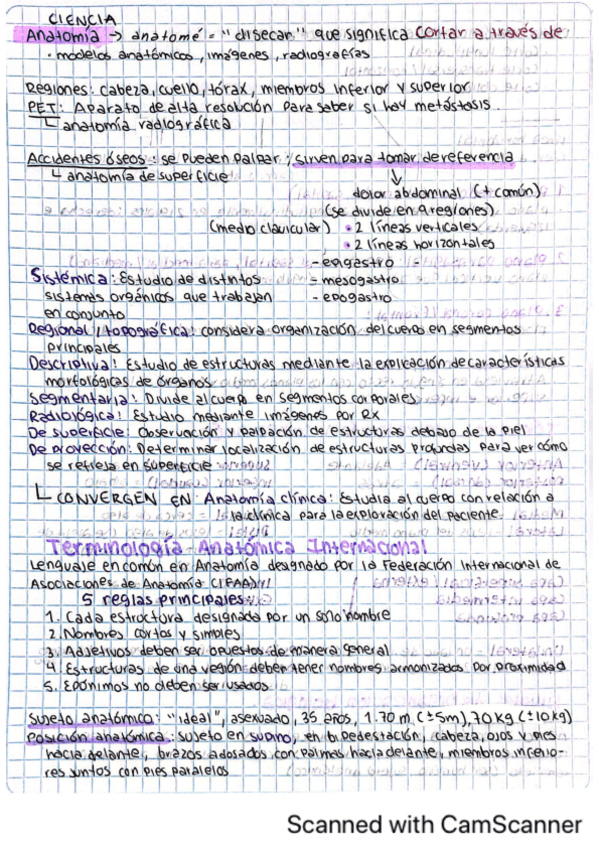 CIENCIA
Anatomía → anatomé = "disecar" que significa cortar a través de
· modelos anatómicos, imágenes, radiografías
Regiones: cabeza, cuello, tórax, miembros inferior y superior
PET: Aparato de alta resolución para saber si hay metástasis.
└ anatomía radiográfica
Accidentes óseos: se pueden palpar; sirven para tomar de referencia
└ anatomía de superficie
↓
dolor abdominal (+ común)
(se divide en 9 regiones)
(medio clavicular) • 2 líneas verticales
• 2 líneas horizontales
- epigastro
Sistémica: Estudio de distintos - mesogastro
sistemas orgánicos que trabajan - epogastro
en conjunto
Regional / topográfica: considera organización del cuerpo en segmentos
principales
Descriptiva: Estudio de estructuras mediante la explicación de características
morfológicas de órganos
Segmentaria: Divide al cuerpo en segmentos corporales
Radiológica: Estudio mediante imágenes por Rx
De superficie: Observación y palpación de estructuras debajo de la piel
De proyección: Determinar localización de estructuras profundas para ver cómo
se refleja en superficie
└ CONVERGEN EN: Anatomía clínica: Estudia al cuerpo con relación a
la clínica para la exploración del paciente.
Terminología Anatómica Internacional
Lenguaje en común en Anatomía designado por la Federación Internacional de
Asociaciones de Anatomía (IFAA)
5 reglas principales
1. Cada estructura designada por un solo nombre
2. Nombres cortos y simples
3. Adjetivos deben ser opuestos de manera general
4. Estructuras de una región deben tener nombres armonizados por proximidad
5. Epónimos no deben ser usados
Sujeto anatómico: "ideal", asexuado, 35 años, 1.70 m (±5m), 70 kg (±10 kg)
Posición anatómica: sujeto en supino, en bipedestación, cabeza, ojos y pies
hacia delante, brazos adosados con palmas hacia delante, miembros inferio-
res juntos con pies paralelos
Scanned with CamScanner